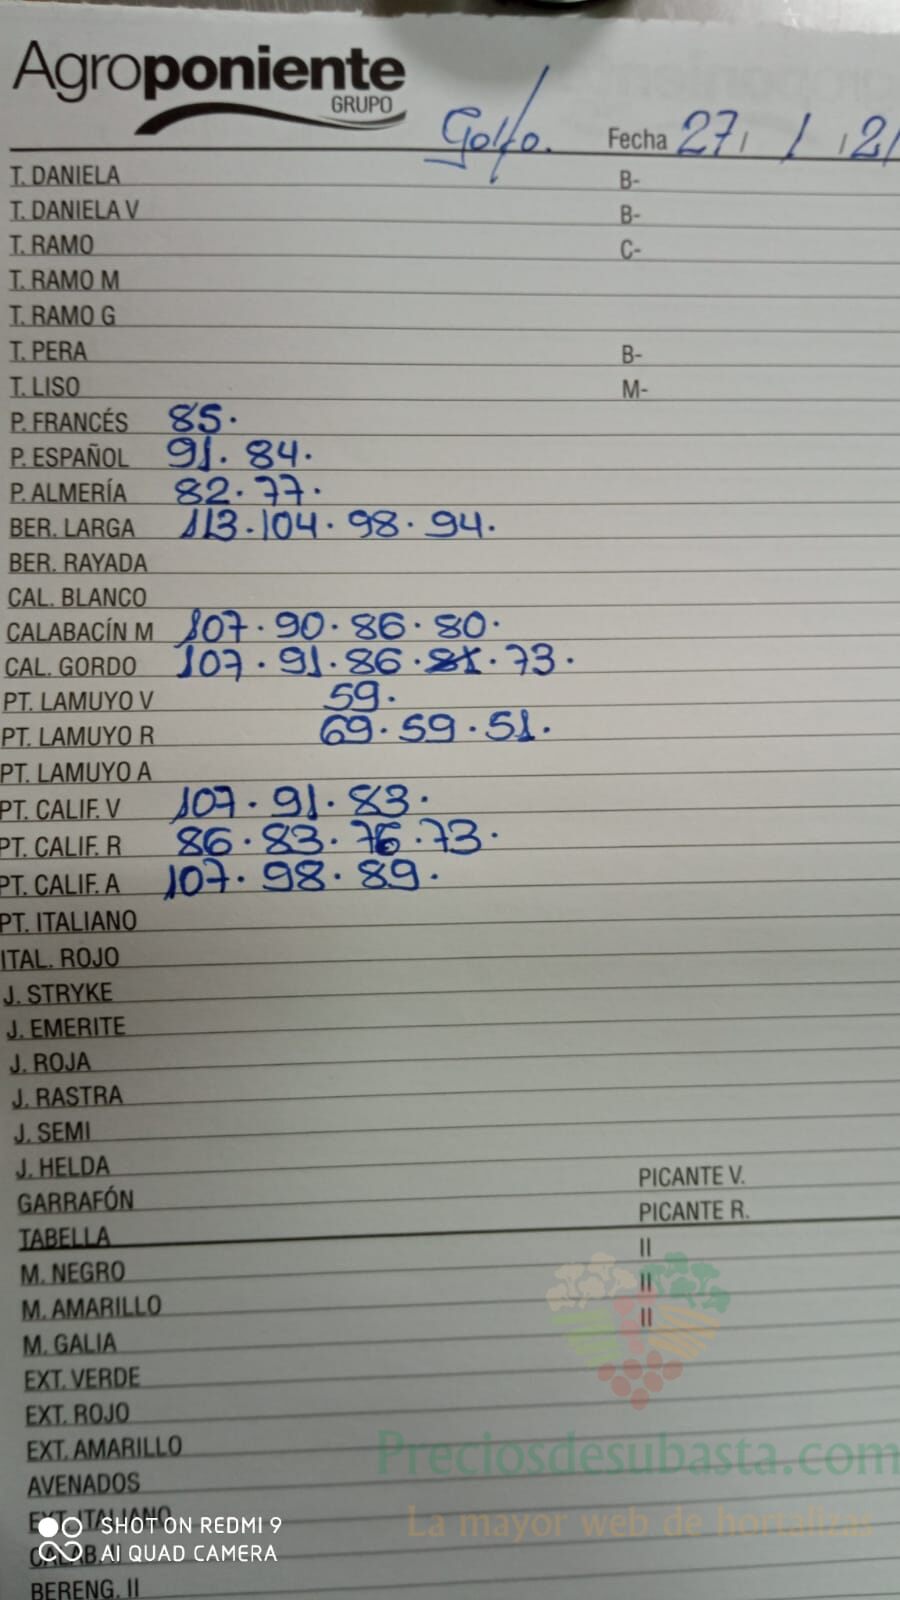 Agroponiente
GRUPO
Golfo. Fecha 27/ 1 /21
T. DANIELA B-
T. DANIELA V B-
T. RAMO C-
T. RAMO M
T. RAMO G
T. PERA B-
T. LISO M-
P. FRANCÉS 85.
P. ESPAÑOL 91. 84.
P. ALMERÍA 82. 77.
BER. LARGA 113. 104. 98. 94.
BER. RAYADA
CAL. BLANCO
CALABACÍN M 107. 90. 86. 80.
CAL. GORDO 107. 91. 86. 81. 73.
PT. LAMUYO V 59.
PT. LAMUYO R 69. 59. 51.
PT. LAMUYO A
PT. CALIF. V 107. 91. 83.
PT. CALIF. R 86. 83. 76. 73.
PT. CALIF. A 107. 98. 89.
PT. ITALIANO
ITAL. ROJO
J. STRYKE
J. EMERITE
J. ROJA
J. RASTRA
J. SEMI
J. HELDA
GARRAFÓN PICANTE V.
TABELLA PICANTE R.
M. NEGRO II
M. AMARILLO II
M. GALIA II
EXT. VERDE
EXT. ROJO
EXT. AMARILLO
AVENADOS
EXT. ITALIANO
CALAB. II
BERENG. II
Preciosdesubasta.com
La mayor web de hortalizas
SHOT ON REDMI 9
AI QUAD CAMERA